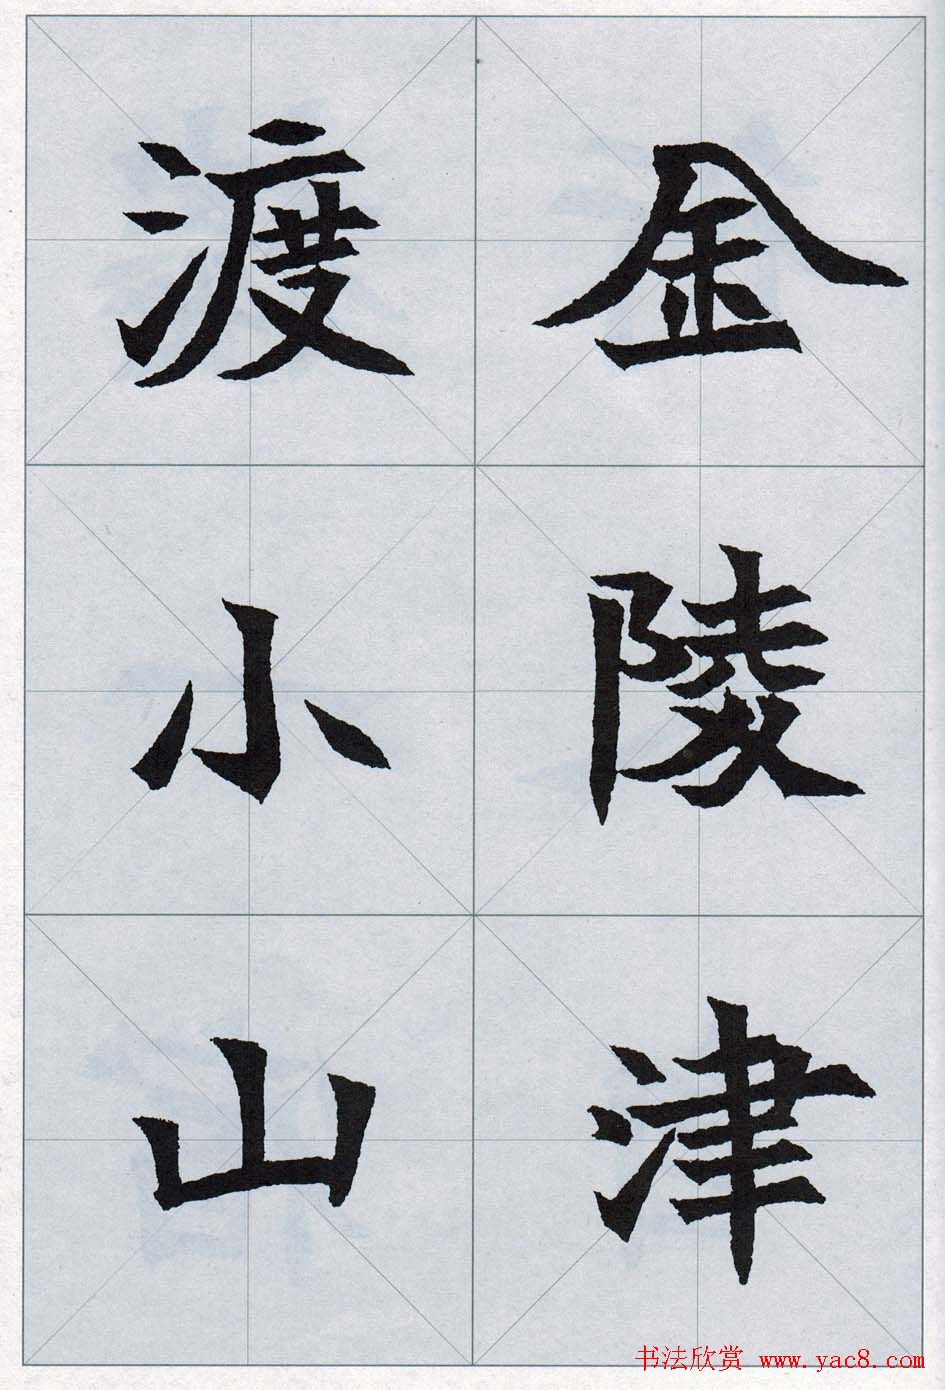 金陵津
渡小山
书法欣赏 www.yac8.com